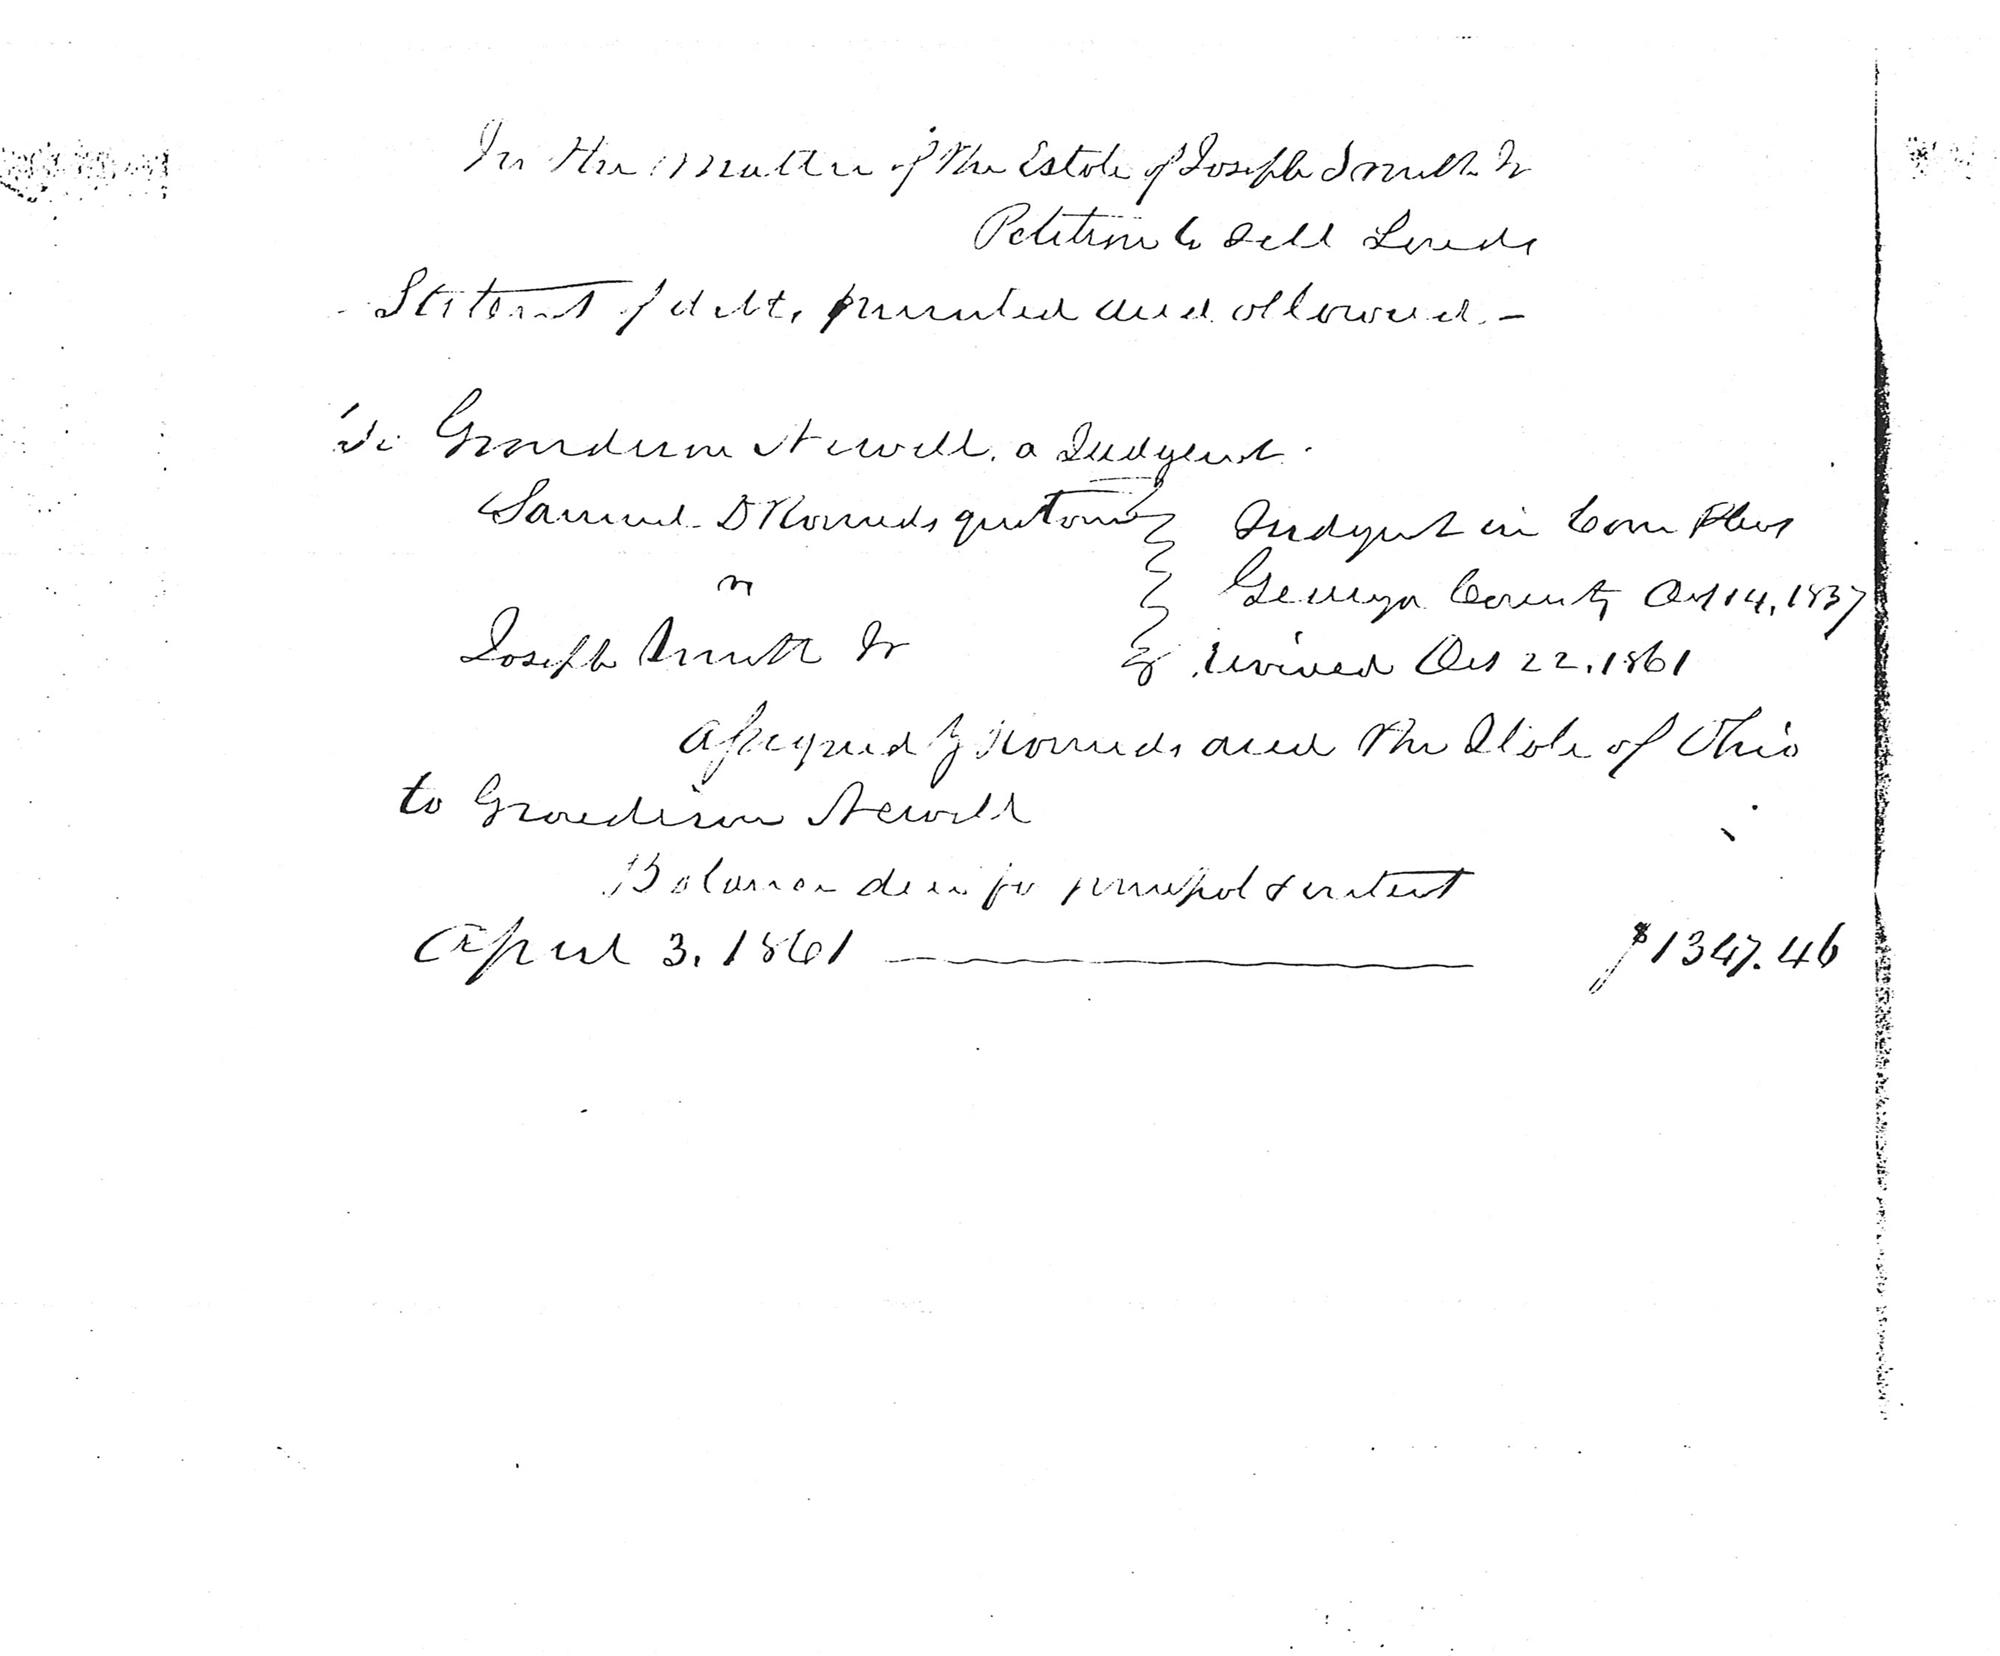 In the Matter of the Estate of Joseph Smith Jr
Petition to sell Lands
Statemt of debts presented and allowed. —
To Grandison Newell. a Judgemt.
Samuel D Rounds quitam
vs
Joseph Smith Jr
Judgmt in Com Pleas
Geauga County Oct 14, 1837
revived Oct 22. 1861
assigned by Rounds and the State of Ohio
to Grandison Newell
Balance due for principal & interest
April 3. 1861 — $1347.46